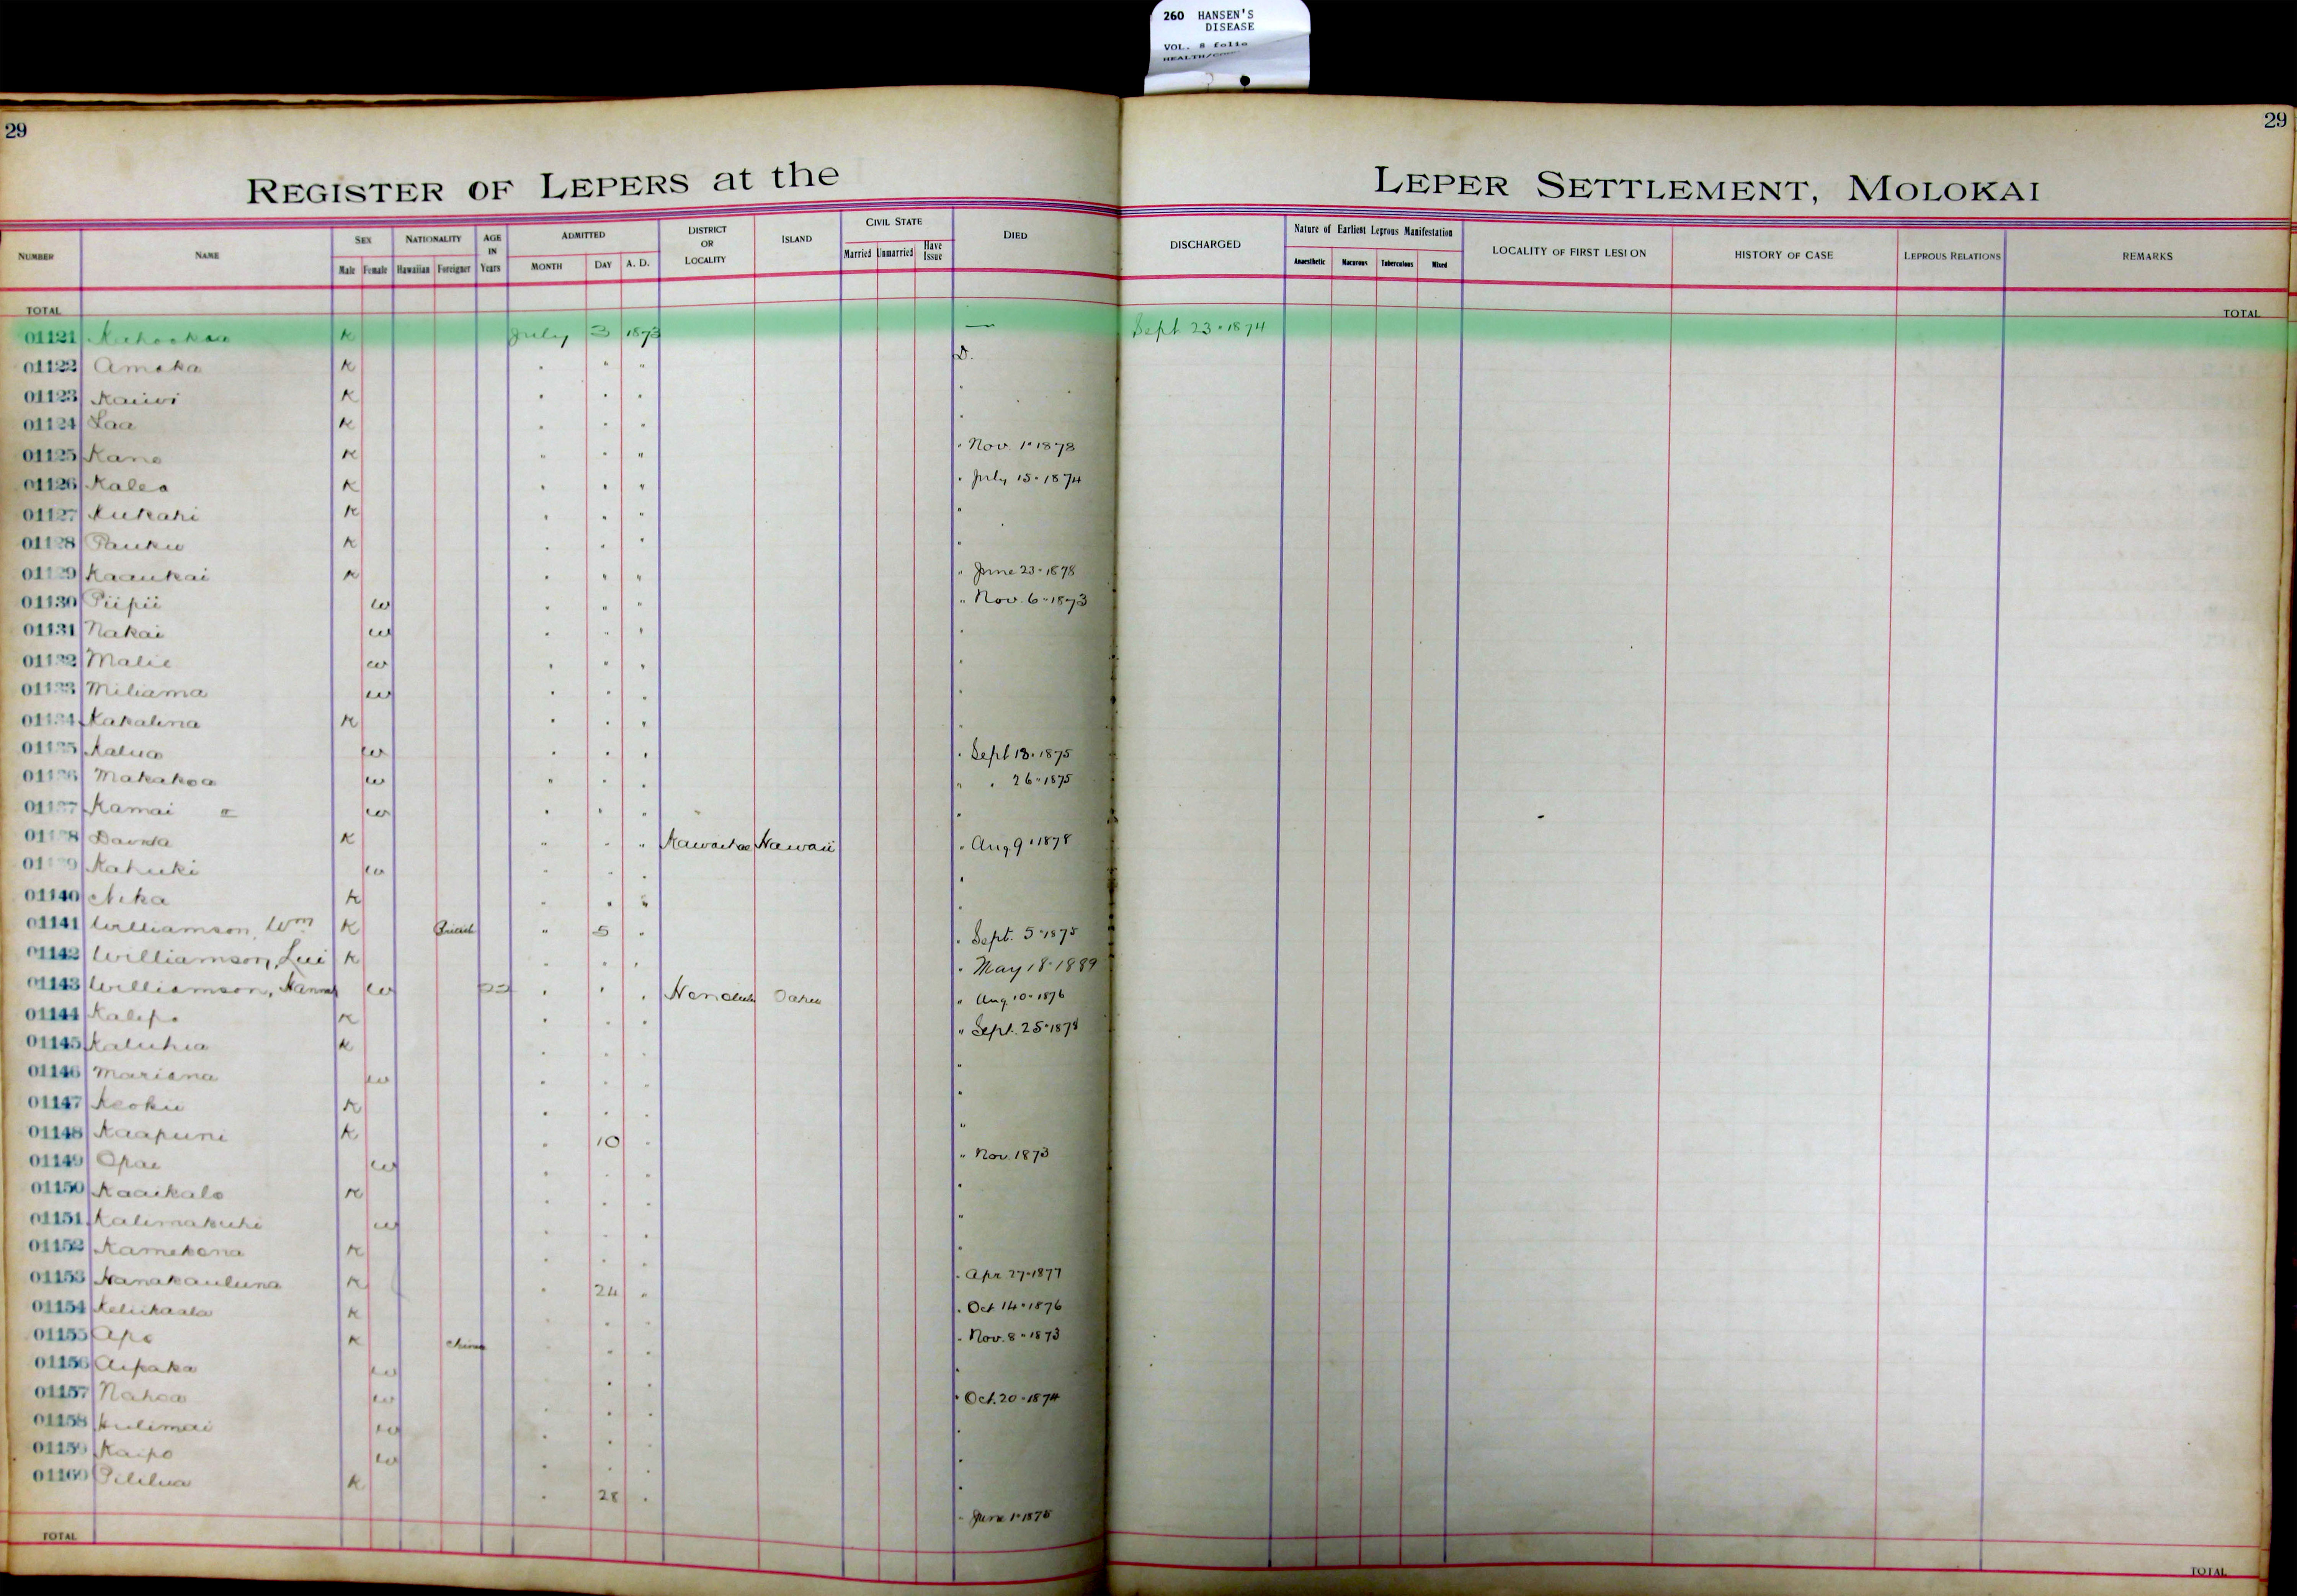 260 HANSEN'S
DISEASE
VOL. 8 folio
29
29
REGISTER OF LEPERS at the LEPER SETTLEMENT, MOLOKAI
NUMBER NAME SEX NATIONALITY AGE IN Years ADMITTED DISTRICT OR LOCALITY ISLAND CIVIL STATE DIED DISCHARGED Nature of Earliest Leprous Manifestation LOCALITY OF FIRST LESION HISTORY OF CASE LEPROUS RELATIONS REMARKS
Male Female Hawaiian Foreigner MONTH DAY A. D. Married Unmarried Have Issue Anaesthetic Macurous Tuberculous Mixed
TOTAL TOTAL
01121 K July 3 1873 — Sept 23 · 1874
01122 Amaka K " " " D.
01123 Kaiwi K " " " "
01124 Laa K " " " "
01125 Kane K " " " " Nov. 1 · 1878
01126 Kalea K " " " " July 15 · 1874
01127 Kukahi K " " " "
01128 Pauku K " " " "
01129 Kaaukai K " " " " June 23 · 1878
01130 Piipii W " " " " Nov. 6 · 1873
01131 Nakai W " " " "
01132 Malie W " " " "
01133 Miliama W " " " "
01134 Kakalina K " " " "
01135 Kalua W " " " " Sept 18 · 1875
01136 Makakoa W " " " " " 26 · 1875
01137 Kamai W " " " "
01138 K " " " Kawaihae Hawaii " Aug 9 · 1878
01139 Kahuki W " " " "
01140 Nika K " " " "
01141 Williamson, Wm K British " 5 " " Sept. 5 · 1875
01142 Williamson, Lui K " " " " May 18 · 1889
01143 Williamson, Hannah W " " " Honolulu Oahu " Aug. 10 · 1876
01144 K " " " " Sept. 25 · 1878
01145 Kaluhia K " " " "
01146 Mariana W " " " "
01147 Keoku K " " " "
01148 Kaapuni K " 10 " "
01149 Opae W " " " " Nov. 1873
01150 Kaaikalo K " " " "
01151 Kalimakuhi W " " " "
01152 Kamekona K " " " "
01153 Nanakauluna K " 24 " " Apr 27 · 1877
01154 Keliikaala K " " " " Oct 14 · 1876
01155 Apo K China " " " " Nov. 8 · 1873
01156 Aipaka W " " " "
01157 Nahoa W " " " " Oct. 20 · 1874
01158 Kulimai W " " " "
01159 Kaipo W " " " "
01160 Pililua K " 28 " " June 1 · 1875
TOTAL TOTAL